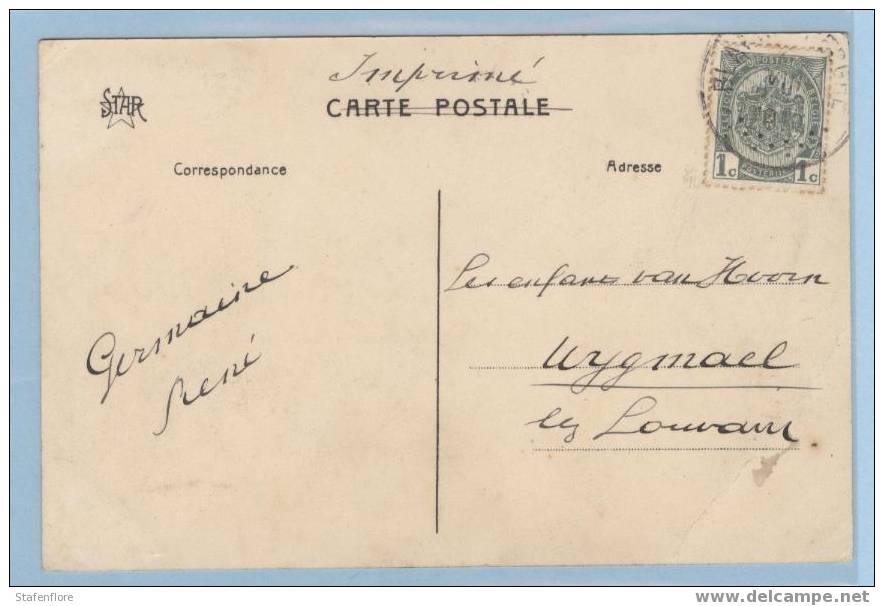 Imprimé
STAR
CARTE POSTALE
Correspondance
Adresse
1c 1c
Les enfants van Hoorn
Germaine
Wygmael
René
lez Louvain
Stafenflore
delcampe.net